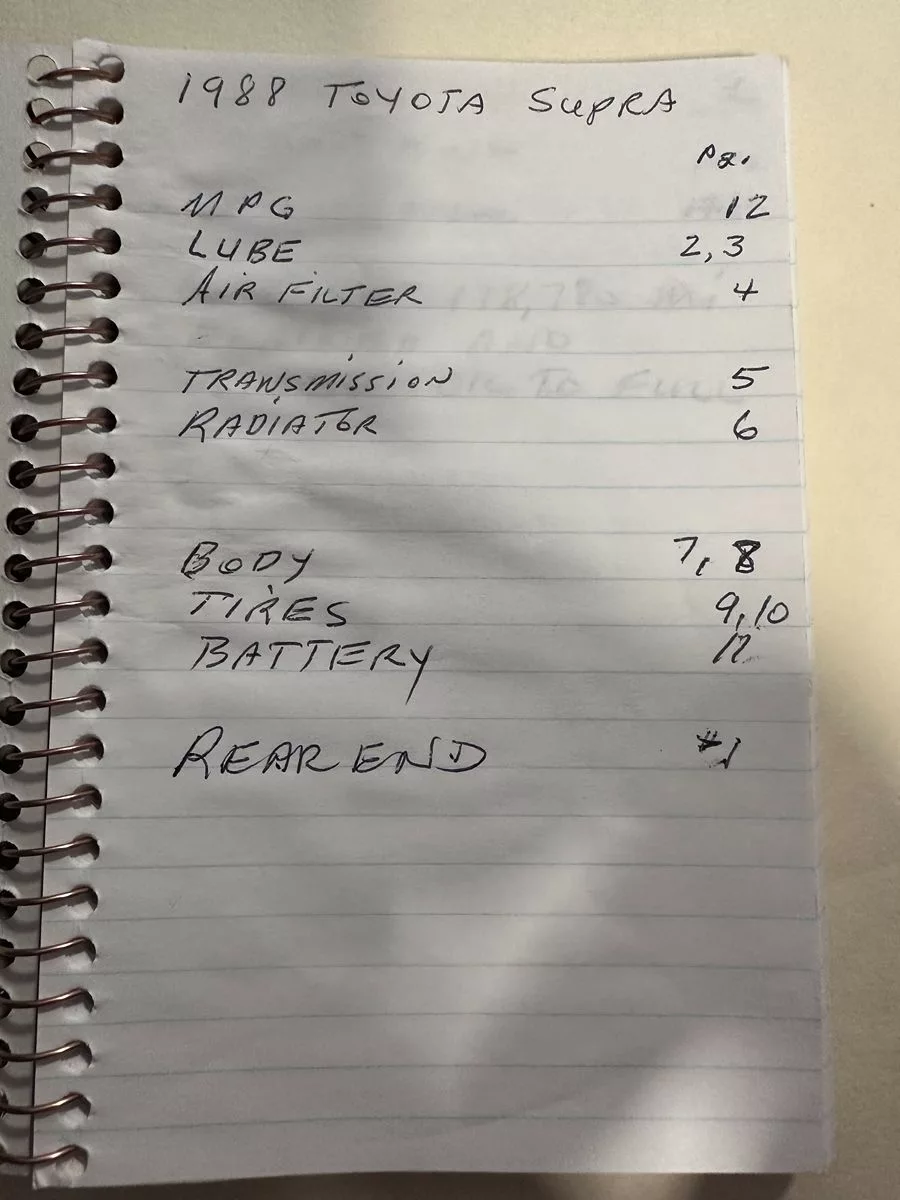 1988 TOYOTA SUPRA
Pg.
MPG 12
LUBE 2, 3
AIR FILTER 4
TRANSMISSION 5
RADIATOR 6
BODY 7, 8
TIRES 9, 10
BATTERY
REAR END #1